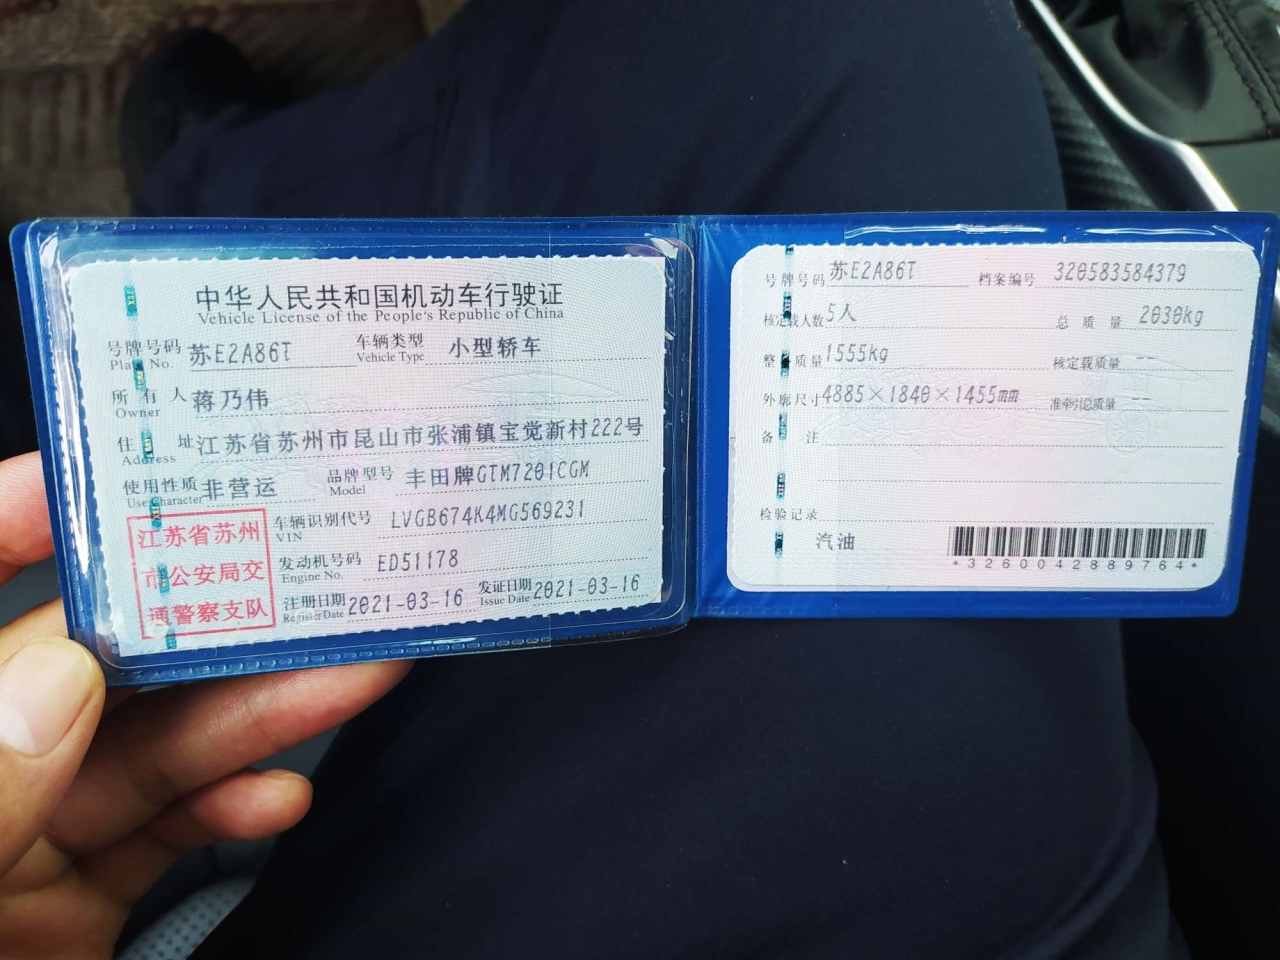 中华人民共和国机动车行驶证
Vehicle License of the People's Republic of China
号牌号码 苏E2A86T 车辆类型 小型轿车
Plate No. Vehicle Type
所有人 蒋乃伟
Owner
住址 江苏省苏州市昆山市张浦镇宝觉新村222号
Address
使用性质 非营运 品牌型号 丰田牌GTM7201CGM
Use Character Model
江苏省苏州
市公安局交
通警察支队
车辆识别代号 LVGB674K4MG569231
VIN
发动机号码 ED51178
Engine No.
注册日期 2021-03-16 发证日期 2021-03-16
Register Date Issue Date
号牌号码 苏E2A86T 档案编号 320583584379
核定载人数 5人 总质量 2030kg
整备质量 1555kg 核定载质量 --
外廓尺寸 4885×1840×1455mm 准牵引总质量 --
备注
检验记录
汽油
*3260042889764*